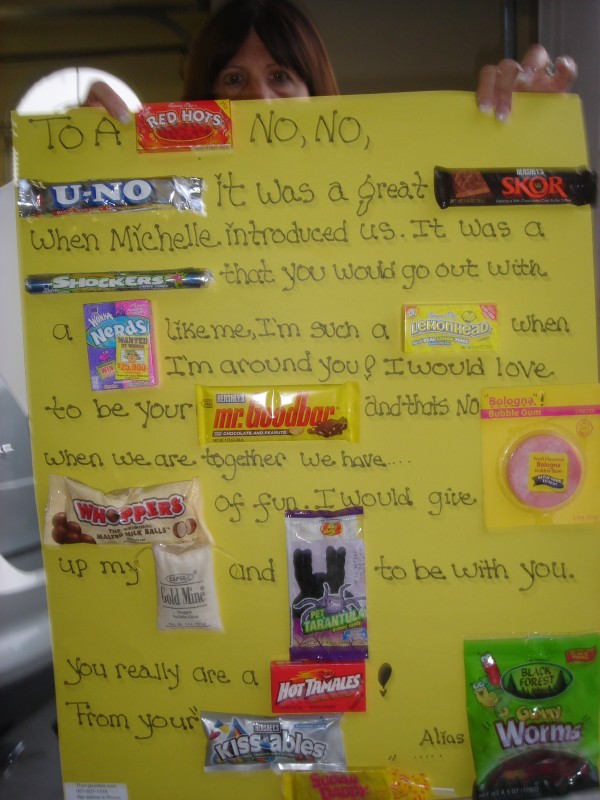 To A RED HOTS No, No,
U-NO it was a great HERSHEY'S SKOR
When Michelle introduced us. It was a
SHOCKERS that you would go out with
a WONKA NERDS WANTED $25,000 like me, I'm such a LEMONHEAD when
I'm around you! I would love
to be your HERSHEY'S mr. Goodbar CHOCOLATE AND PEANUTS and thats NO "Bologna" Bubble Gum
Bologna
when we are together we have....
WHOPPERS THE ORIGINAL MALTED MILK BALLS of fun. I would give
up my Gold Mine and Jelly Belly PET TARANTULA to be with you.
You really are a HOT TAMALES
From your HERSHEY'S KISSABLES Alias BLACK FOREST Gummy Worms
SUGAR DADDY